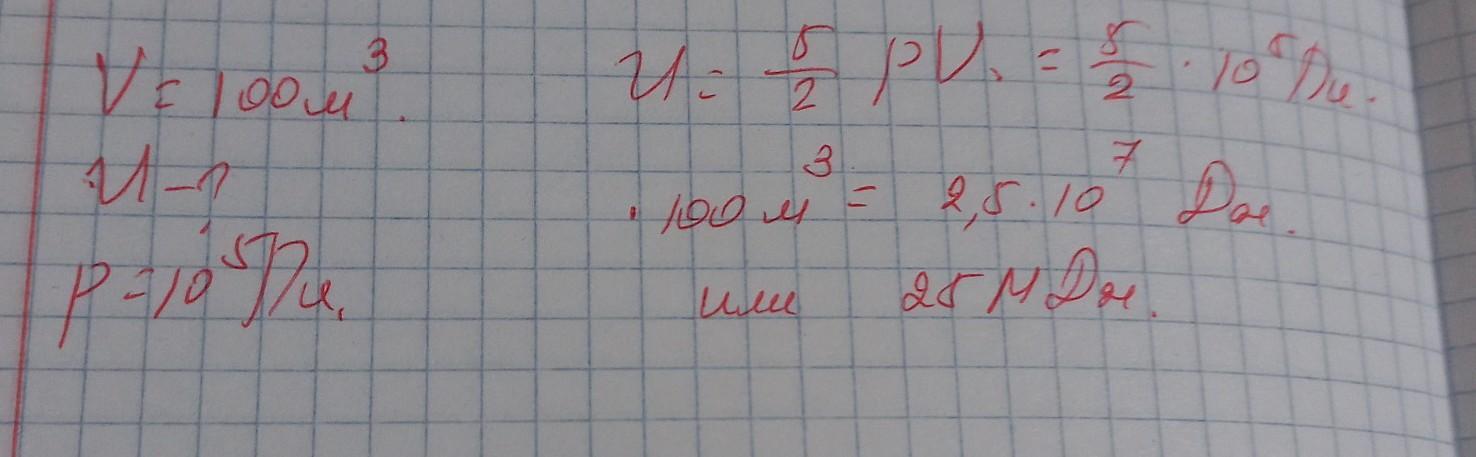 V = 100 м³.
U - ?
p = 10⁵ Па.
U = 5/2 pV. = 5/2 · 10⁵ Па.
· 100 м³ = 2,5 · 10⁷ Дж.
или 25 МДж.